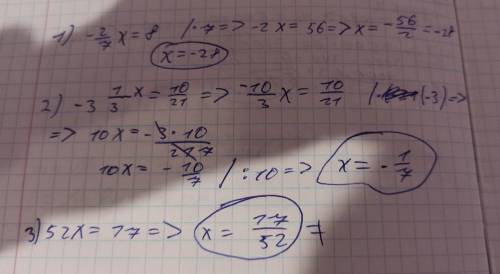 1) -2/7 x = 8 /·7 => -2x = 56 => x = -56/2 = -28
x = -28
2) -3 1/3 x = 10/21 => -10/3 x = 10/21 /· (-3) =>
=> 10x = - 3·10/21 7
10x = - 10/7 /:10 => x = - 1/7
3) 52x = 17 => x = 17/52 =